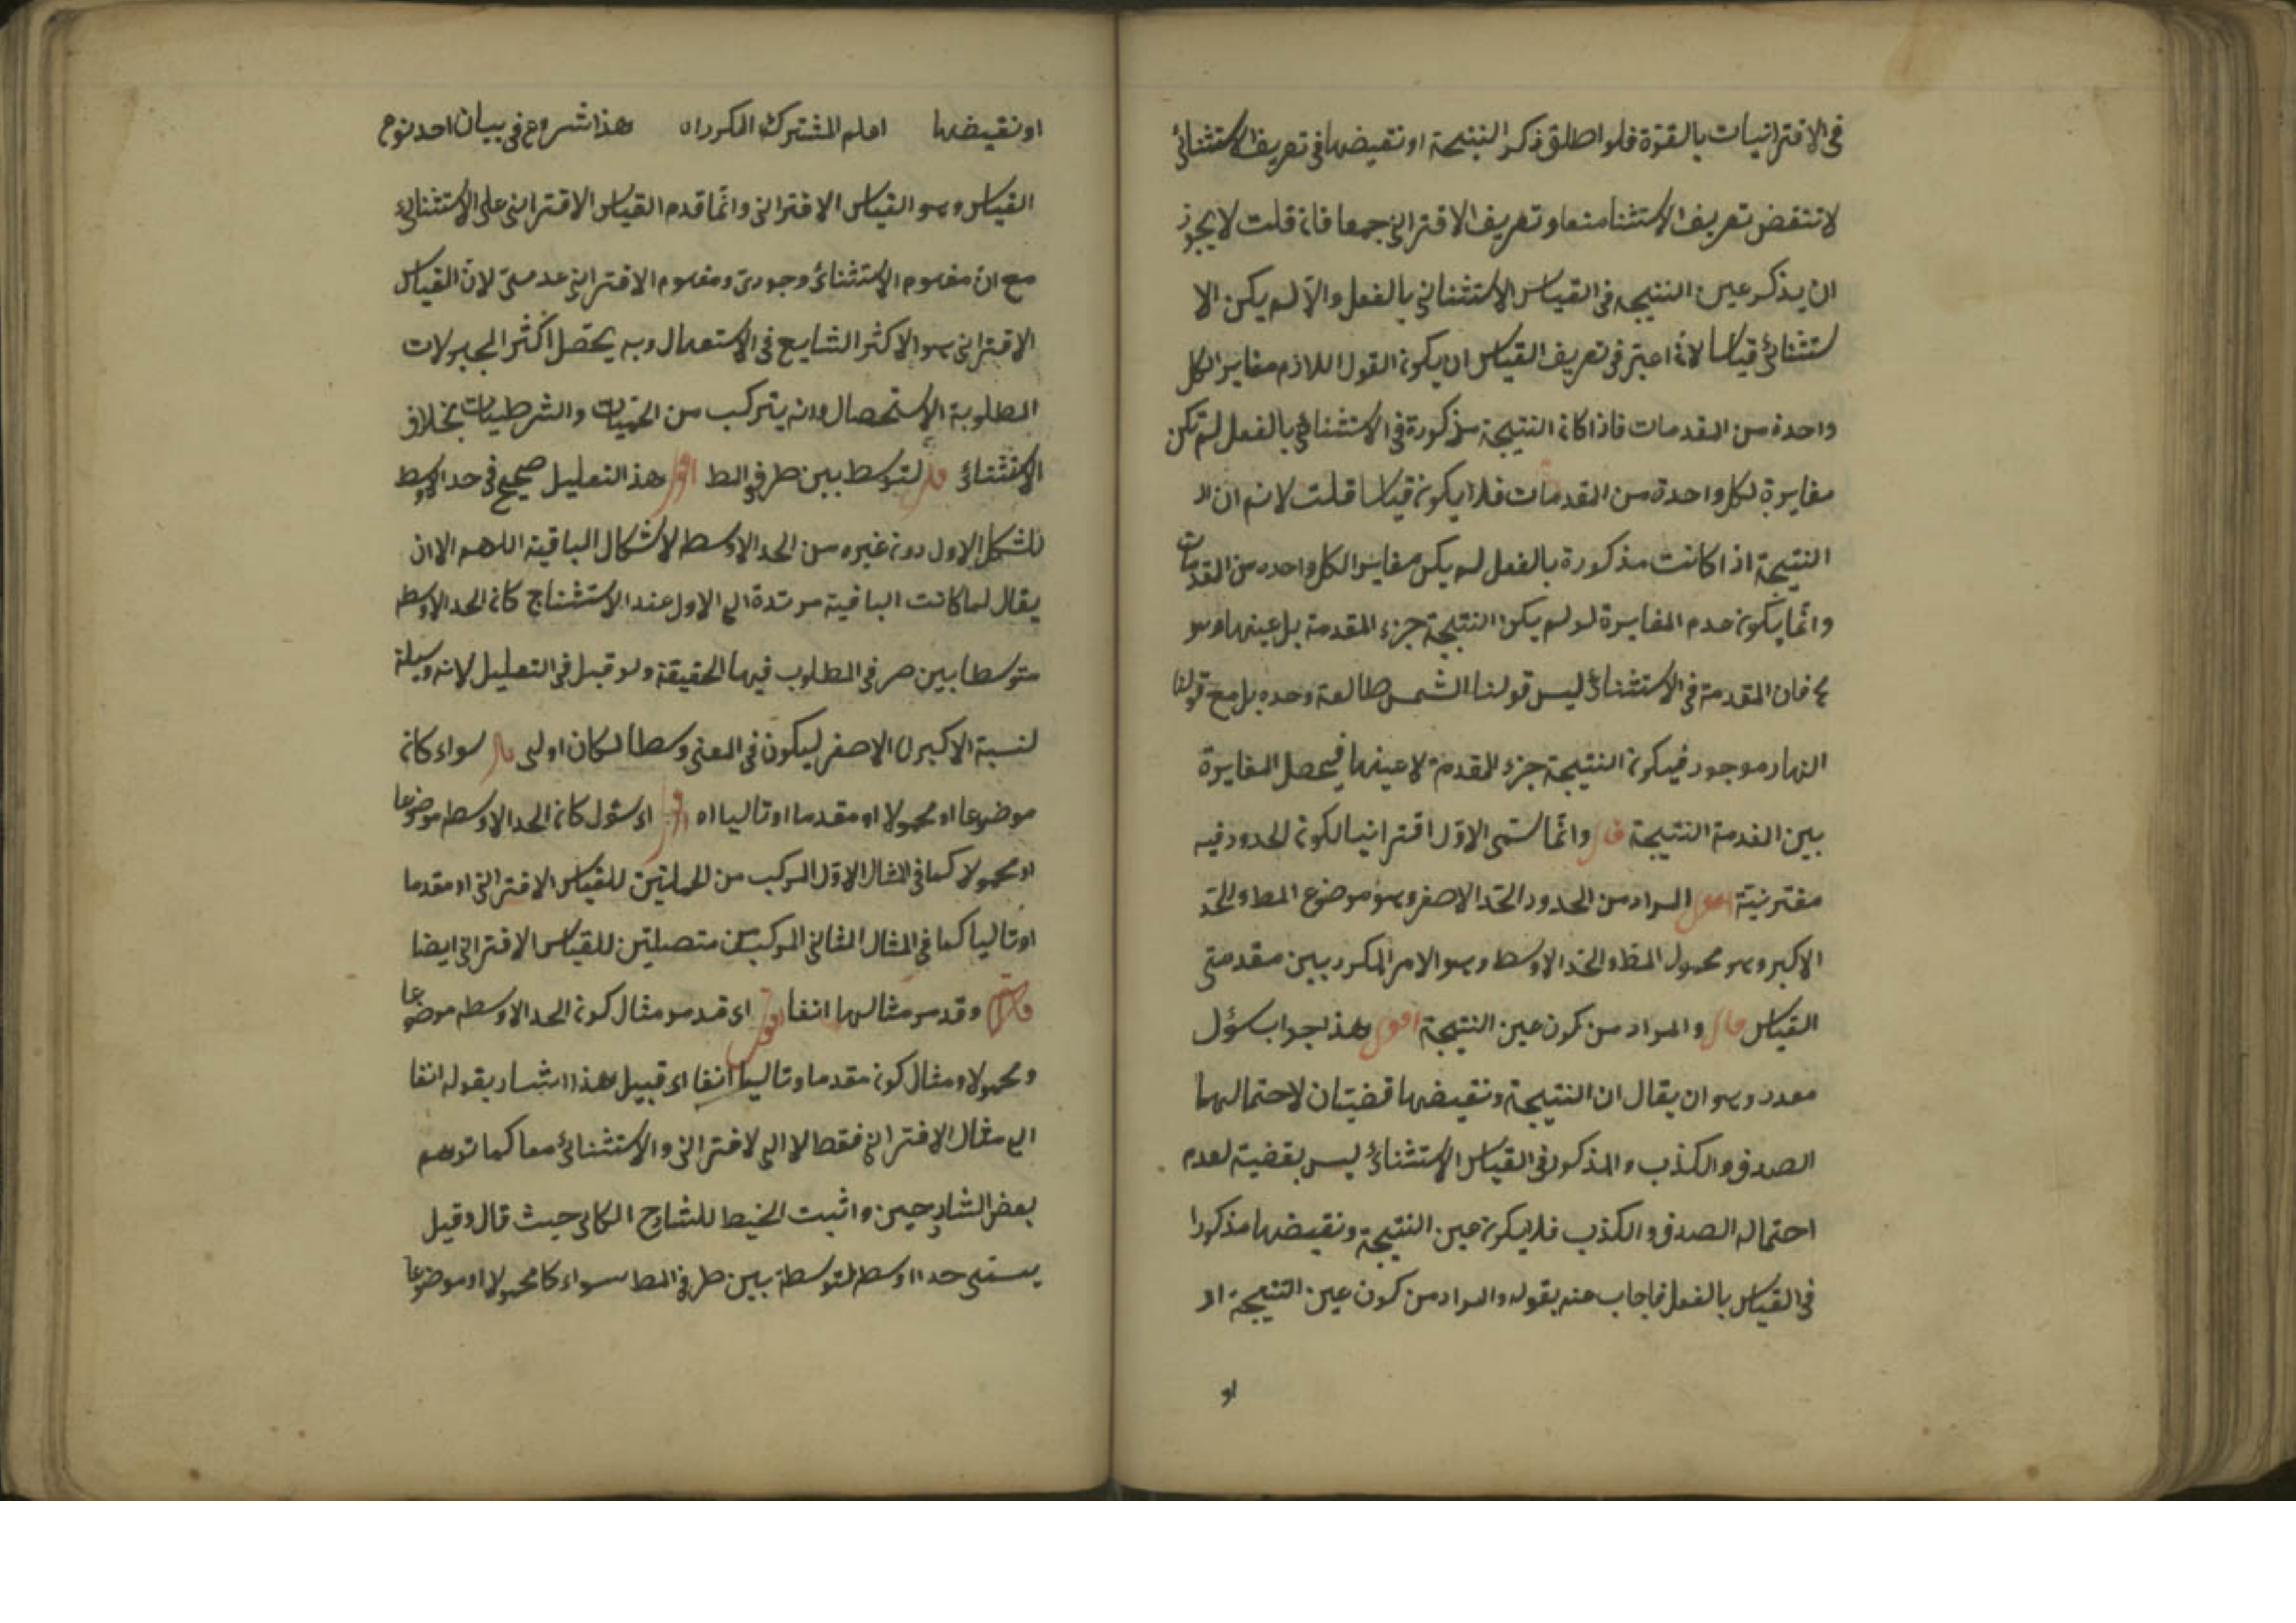 فى الاقترانيات بالقوة فلو اطلق ذكر النتيجة او نقيضها فى تعريف الاستثنائى
لانتقض تعريف الاستثنا منعا و تعريف الاقترانى جمعا فان قلت لا يجوز
ان يذكر عين النتيجه فى القياس الاستثنائى بالفعل والا لم يكن الا
ستثنائى قياسا لانه اعتبر فى تعريف القياس ان يكون القول اللازم مغايرا لكل
واحدة من المقدمات فاذا كان النتيجة مذكورة فى الاستثنائى بالفعل لم تكن
مغايرة لكل واحدة من المقدمات فلا يكون قياسا قلت لا نم ان
النتيجة اذا كانت مذكورة بالفعل لم يكن مغايرا لكل واحده من المقدمات
وانما يكون عدم المغايرة لو لم يكن النتيجة جزء المقدمة بل عينها وهو
مم فان المقدمة فى الاستثنائى ليس قولنا الشمس طالعة وحده بل مع قولنا
النهار موجود فيكون النتيجة جزء المقدمة لا عينها فيحصل المغايرة
بين المقدمة النتيجة قال وانما سمى الاول اقترانيا لكون الحدود فيه
مقترنية اقول المراد من الحدود الحد الاصغر وهو موضوع المط والحد
الاكبر وهو محمول المط والحد الاوسط وهو الامر المكرر بين مقدمتى
القياس قال والمراد من كون عين النتيجة اقول هذا جواب سؤل
مقدر وهو ان يقال ان النتيجة ونقيضها قضيتان لاحتمالهما
الصدق والكذب والمذكور فى القياس الاستثنائى ليس بقضية لعدم
احتماله الصدق والكذب فلا يكون عين النتيجة ونقيضها مذكورا
فى القياس بالفعل فاجاب عنه بقوله والمراد من كون عين النتيجة اه
او
او نقيضها اعلم المشترك المكرر اه هذا شروع فى بيان احد نوع
القياس وهو القياس الاقترانى وانما قدم القياس الاقترانى على الاستثنائى
مع ان مفهوم الاستثنائى وجودى ومفهوم الاقترانى عدمى لان القياس
الاقترانى هو الاكثر الشايع فى الاستعمال وبه يحصل اكثر المجهولات
المطلوبة الاستحصال وانه يتركب من الحمليات والشرطيات بخلاف
الاستثنائى قال لتوسط بين طرفى المط اقول هذا التعليل صحيح فى حد الاوسط
للشكل الاول دون غيره من الحد الاوسط لاشكال الباقية اللهم الا ان
يقال لما كانت الباقية مرتدة الى الاول عند الاستنتاج كان الحد الاوسط
متوسطا بين طرفى المطلوب فيها الحقيقة ولو قيل فى التعليل لانه وسيلة
لنسبة الاكبر الى الاصغر ليكون فى المعنى وسطا لكان اولى قال سواء كان
موضوعا او محمولا او مقدما او تاليا اه اقول اى سئول كان الحد الاوسط موضوعا
او محمولا كما فى المثال الاول المركب من الحمليتين للقياس الاقترانى او مقدما
او تاليا كما فى المثال الثانى المركب من متصيلتين للقياس الاقترانى ايضا
قال وقد مر مثالهما انفا اقول اى قد مر مثال كون الحد الاوسط موضوعا
ومحمولا ومثال كونه مقدما وتاليا انفا اى قبيل هذا اشار بقوله انفا
الى مثال الاقترانى فقط لا الى لاقترانى والاستثنائى معا كما توهم
بعض الشارحين واثبت الخبط للشارح الكاتى حيث قال وقيل
يسمى حدا اوسط لتوسطه بين طرفى المط سواء كا محمولا او موضوعا